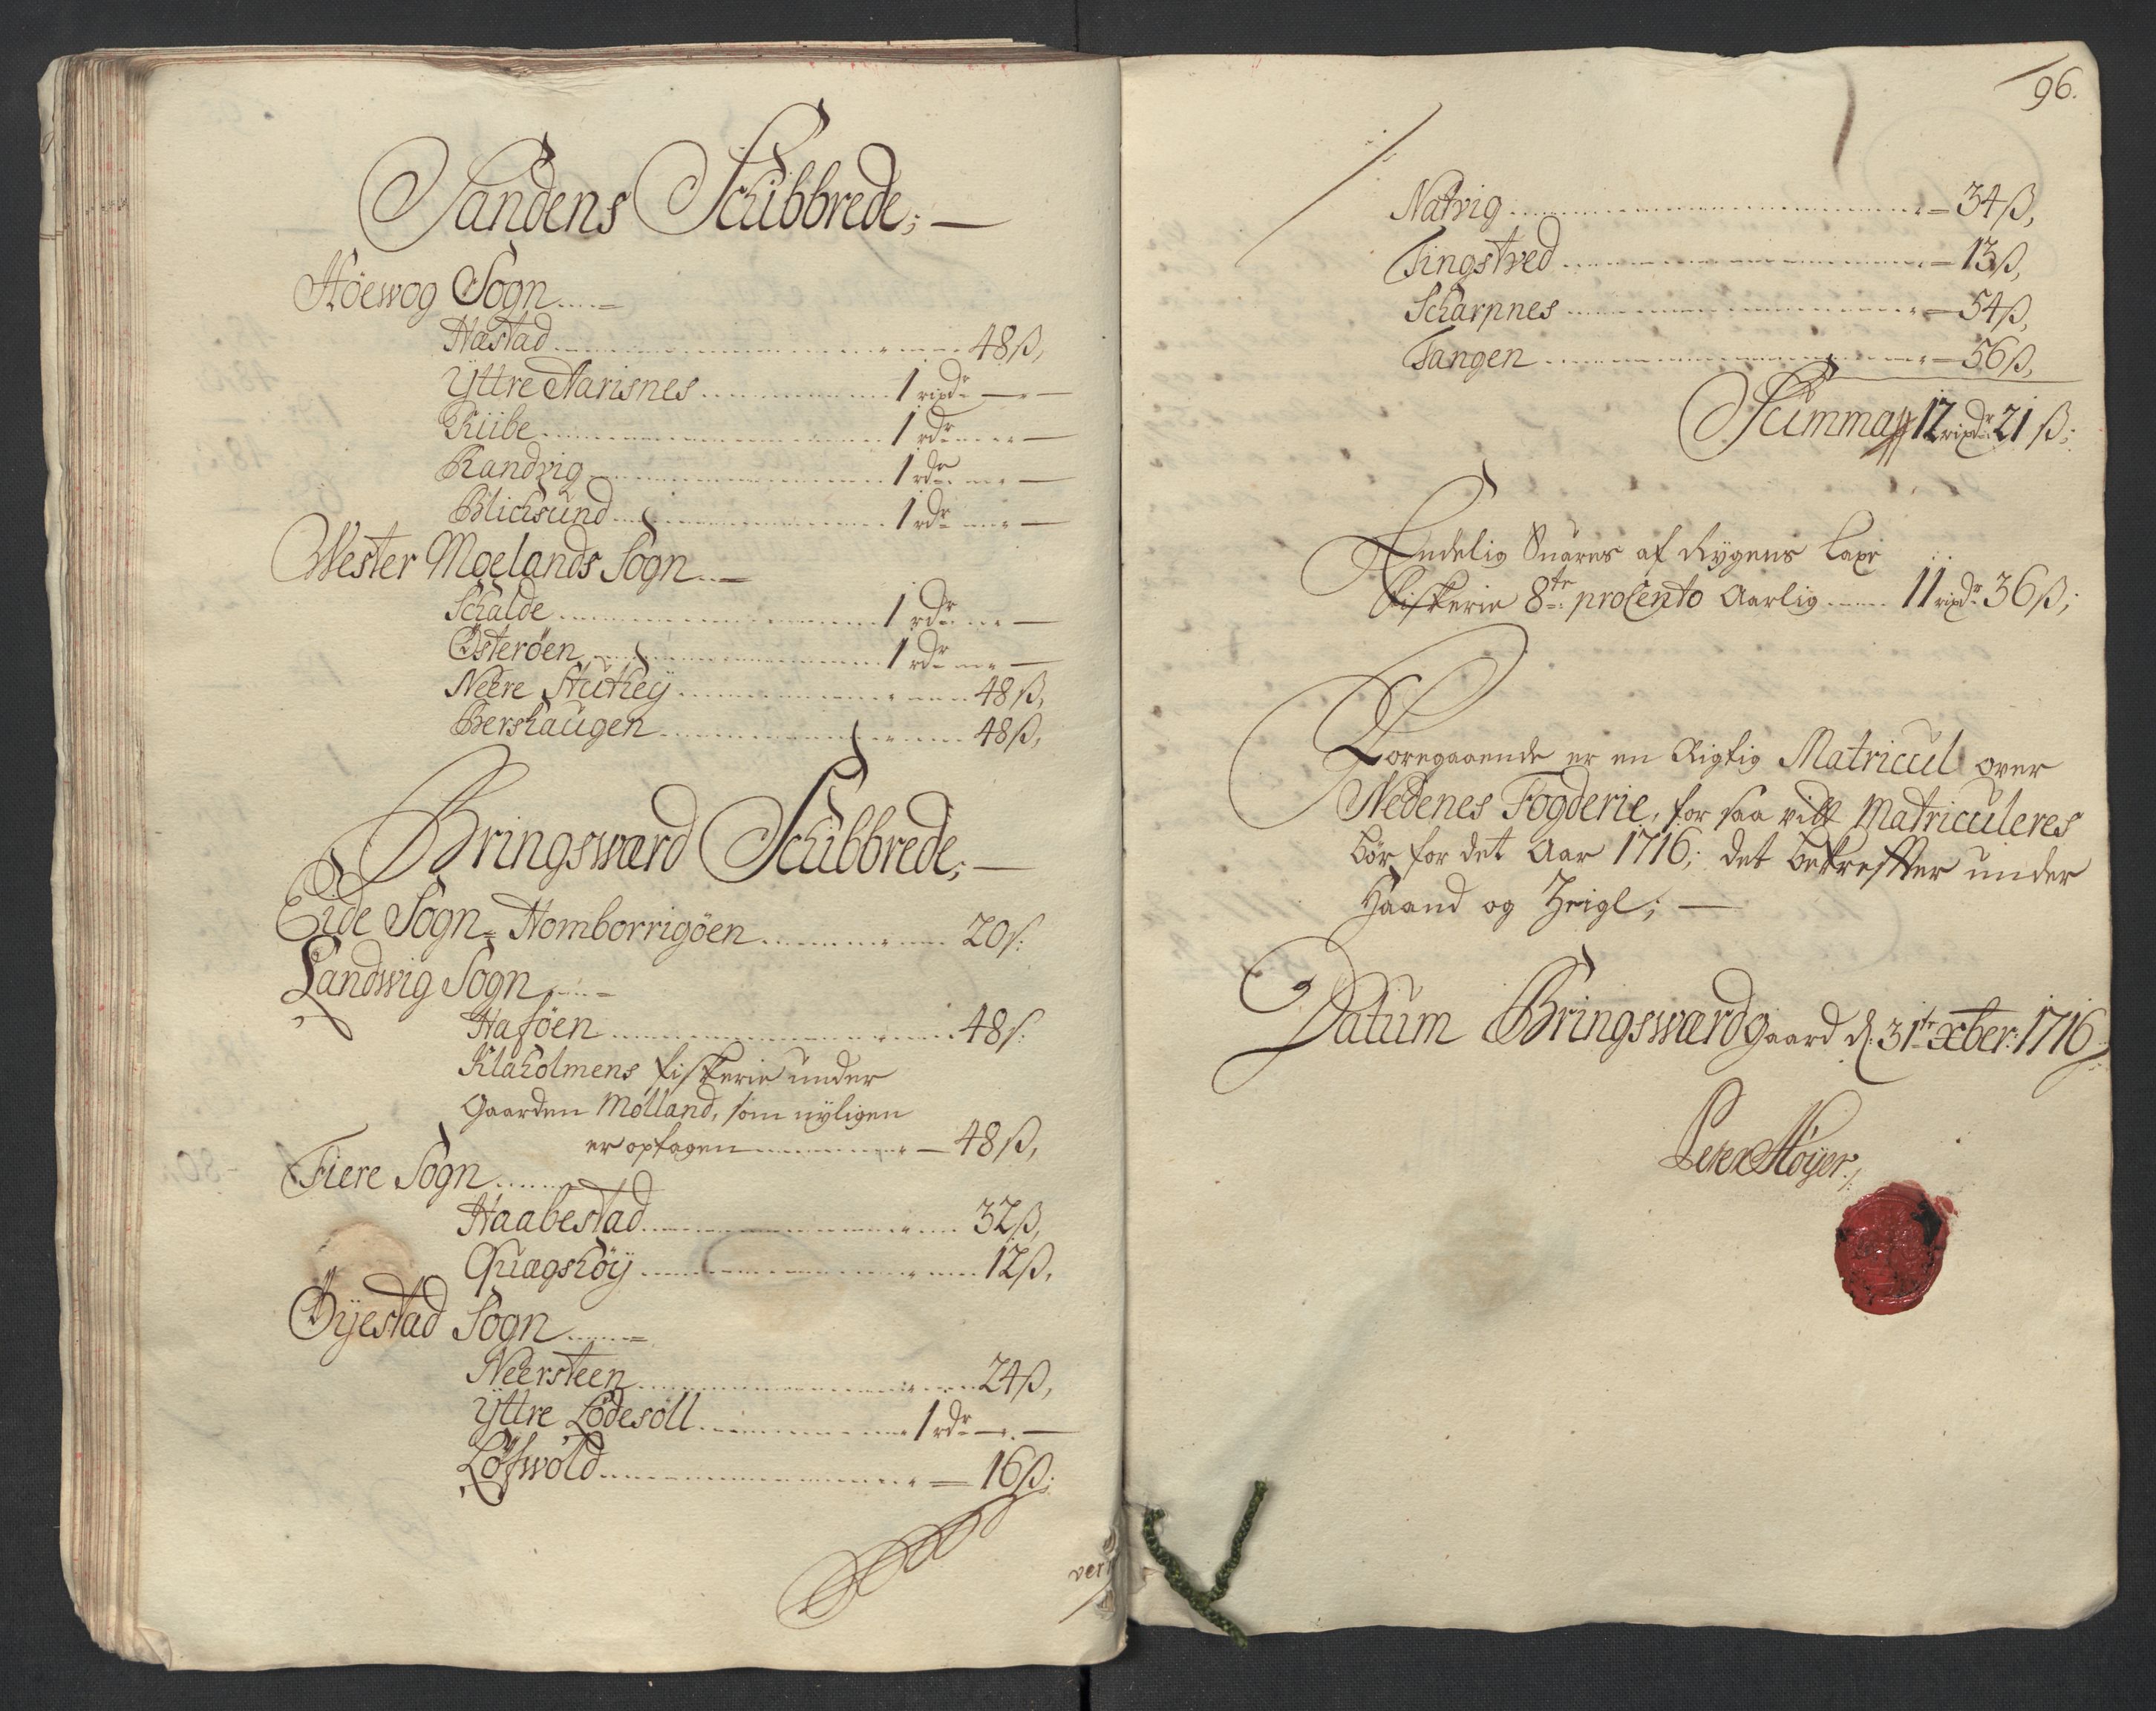 Sandens Schibbrede; —
Höewog Sogn
Hæstad 48 ß,
Yttre Aarisnes 1 rixdr —
Riibe 1 rdr —
Randvig 1 rdr —
Blichsund 1 rdr —
Wester Moelands Sogn
Schalde 1 rdr —
Østerøen 1 rdr —
Nedre 48 ß,
Bershaugen 48 ß,
Bringsværd Schibbrede; —
Eide Sogn = Homborrigøen 20 ß:
Landwig Sogn
Haföen 48 ß:
Klaholmens fiskerie under
Gaarden Molland, som nyligen
er optagen 48 ß,
Fiere Sogn
Haabestad 32 ß,
Qvægshöy 12 ß,
Öyestad Sogn
Neersteen 24 ß,
Yttre Lödesöll 1 rdr —
Löfwold 16 ß:
96.
Natvig 34 ß,
Tingstved 13 ß,
Scharpnes 54 ß,
Tangen 56 ß,
Summa 12 rixdr 21 ß;
Endelig Suares af Rygens Laxe
fiskerie 8te: procento Aarlig 11 rixdr 36 ß;
Foregaaende er en Rigtig Matricul over
Nedenes Fogderie, for saa vit Matriculeres
bör for det Aar 1716; det bekrefter under
Haand og Zeigl; —
Datum Bringsværd gaard d: 31te xber: 1716
Peter Höyer